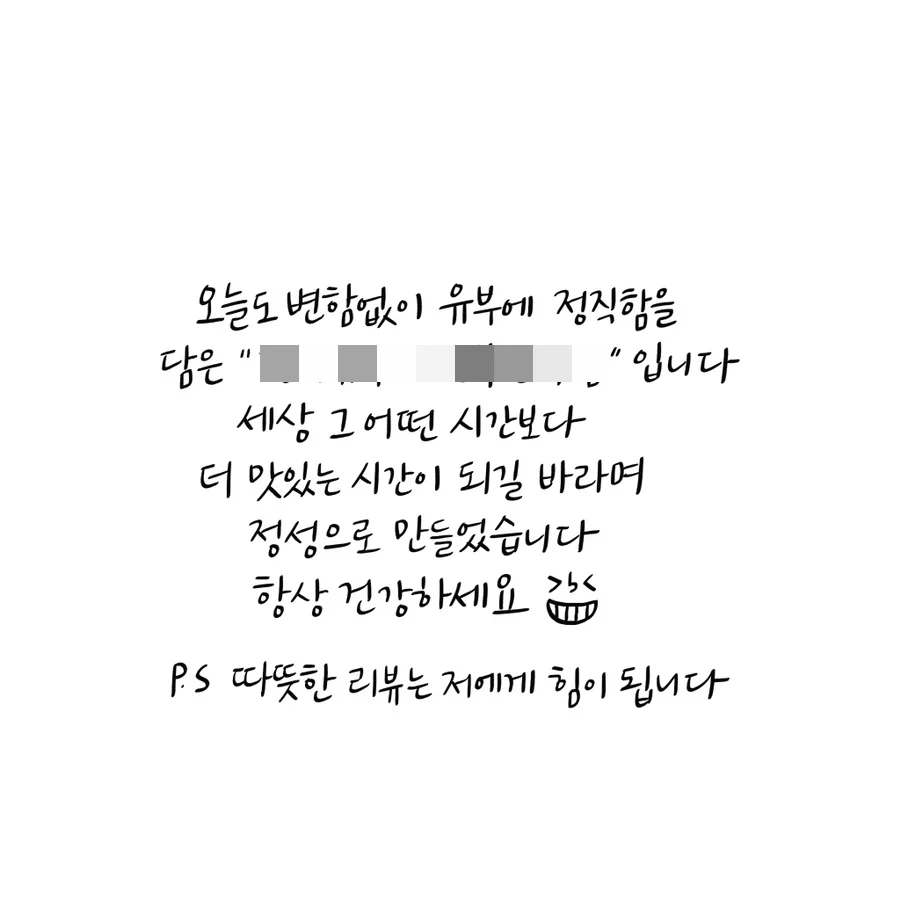 오늘도 변함없이 유부에 정직함을
담은 " " 입니다
세상 그 어떤 시간보다
더 맛있는 시간이 되길 바라며
정성으로 만들었습니다
항상 건강하세요
P.S 따뜻한 리뷰는 저에게 힘이 됩니다